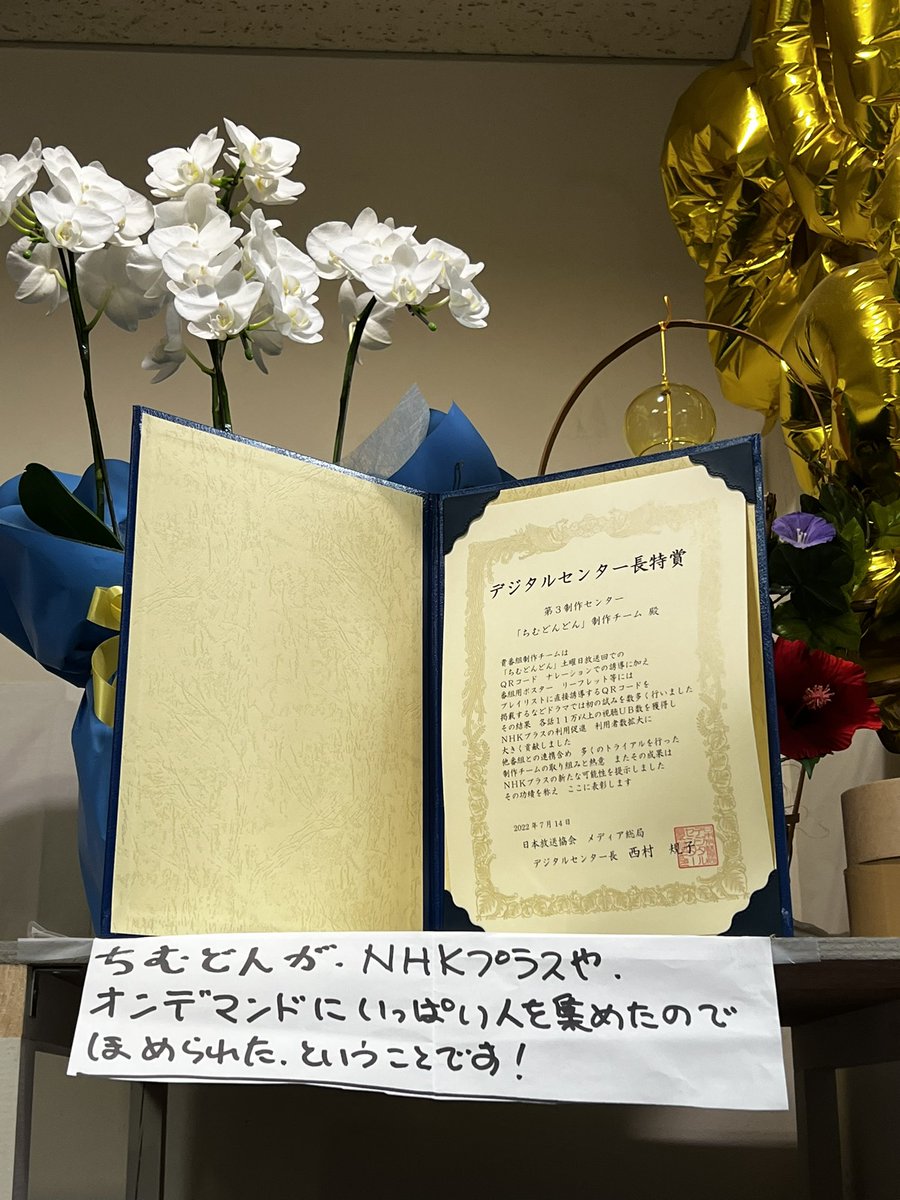 デジタルセンター長特賞
第3制作センター
「ちむどんどん」制作チーム 殿
貴番組制作チームは
「ちむどんどん」土曜日放送回での
QRコード ナレーションでの誘導に加え
番組用ポスター リーフレット等には
プレイリストに直接誘導するQRコードを
掲載するなどドラマでは初の試みを数多く行いました
その結果 各話11万以上の視聴UB数を獲得し
NHKプラスの利用促進 利用者数拡大に
大きく貢献しました
他番組との連携含め 多くのトライアルを行った
制作チームの取り組みと熱意 またその成果は
NHKプラスの新たな可能性を提示しました
その功績を称え ここに表彰します
2022年7月14日
日本放送協会 メディア総局
デジタルセンター長 西村 規子
ちむどんが、NHKプラスや、
オンデマンドにいっぱい人を集めたので
ほめられた、ということです!